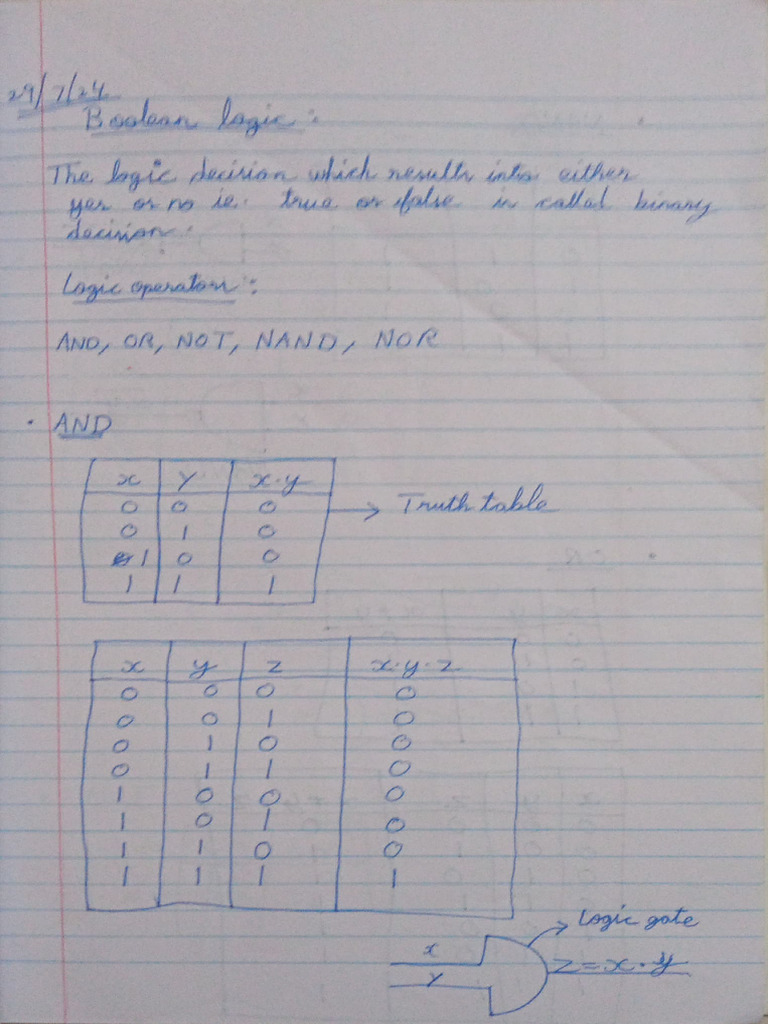 29/7/24
Boolean logic:
The logic decision which results into either
yes or no ie. true or false is called binary
decision.
Logic operators:
AND, OR, NOT, NAND, NOR
• AND
x y x·y
0 0 0 → Truth table
0 1 0
1 0 0
1 1 1
x y z x·y·z
0 0 0 0
0 0 1 0
0 1 0 0
0 1 1 0
1 0 0 0
1 0 1 0
1 1 0 0
1 1 1 1
Logic gate
x
y
z=x·y